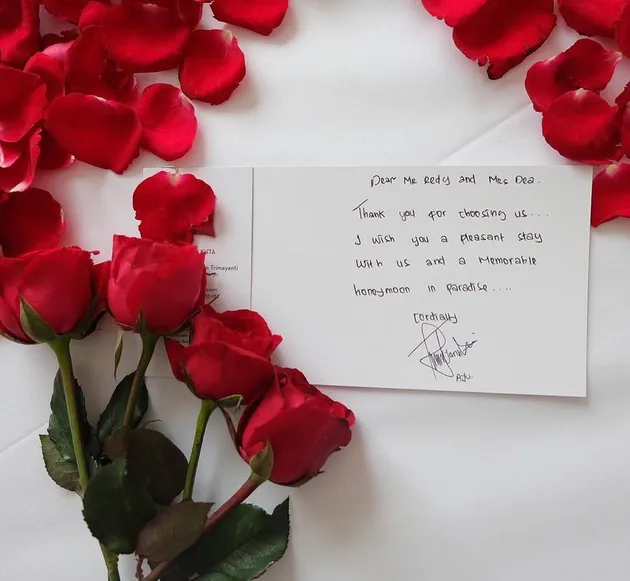 KUTA
Trimayanti
Dear Mr Redy and Mrs Dea.
Thank you for choosing us...
I wish you a pleasant stay
with us and a Memorable
honeymoon in paradise....
Cordially